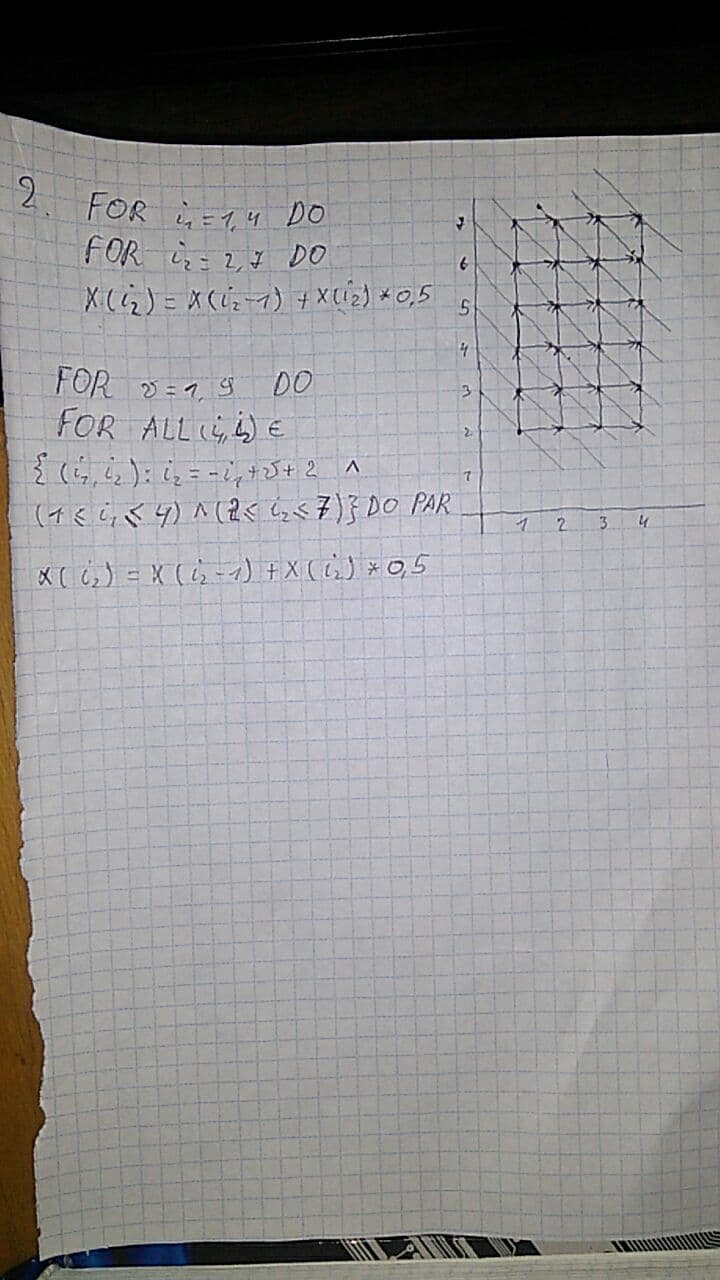 2. FOR i₁=1,4 DO
FOR i₂=2,7 DO
X(i₂) = X(i₂-1) + X(i₂) * 0,5
FOR v=1,9 DO
FOR ALL (i₁,i₂) ∈
{(i₁,i₂): i₂=-i₁+v+2 ∧
(1≤i₁≤4) ∧ (2≤i₂≤7)} DO PAR
X(i₂) = X(i₂-1) + X(i₂) * 0,5
7
6
5
4
3
2
1
1 2 3 4